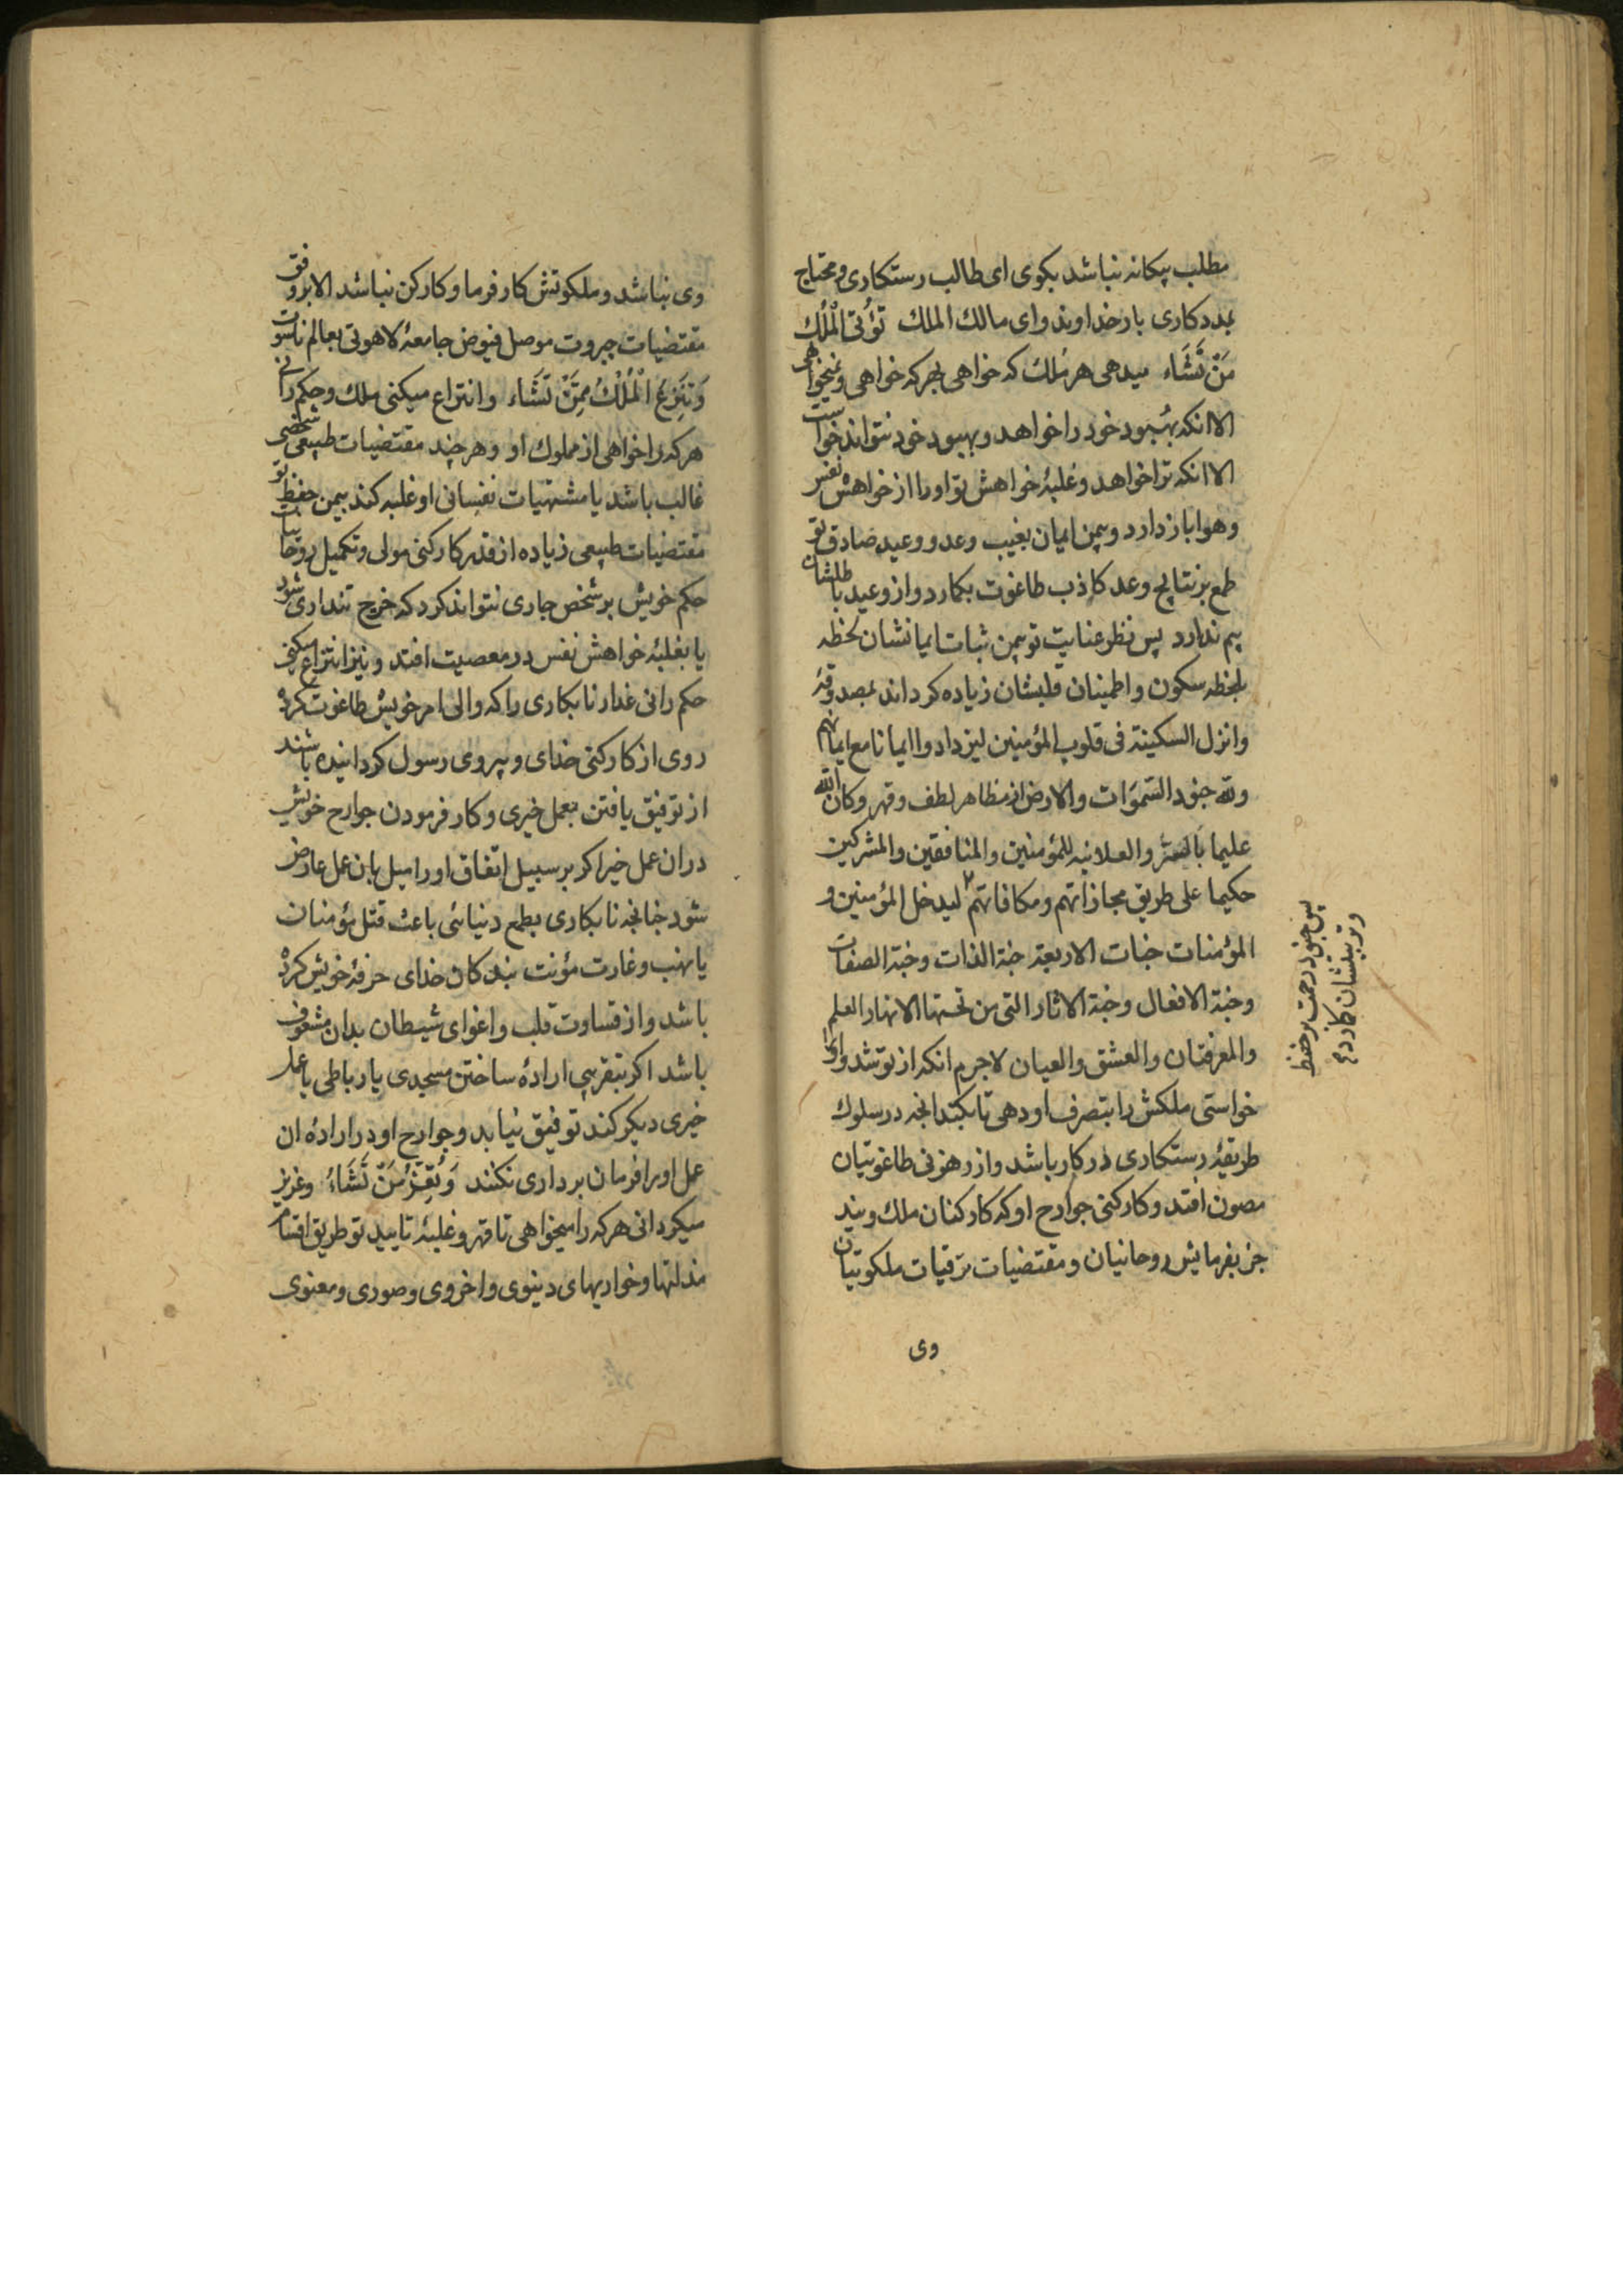 مطلب بیکانه نباشد بکوی ای طالب رستکاری و محتاج
بمددکاری بار خداوند و ای مالک الملک تُؤْتِی الْمُلْكَ
مَنْ تَشَاء میدهی هر مُلک که خواهی بهر که خواهی و نمیخواهی
الا انکه بهبود خود را خواهد و بهبود خود نتواند خواست
الا انکه ترا خواهد و غلبهٔ خواهش تو او را از خواهش نفس
و هوا باز دارد و بیمن ایمان بغیب وعد و وعید صادق تو
طمع بر نتایج وعد کاذب طاغوت بکمارد و از وعید باطلشان
بیم ندارد پس نظر عنایت تو بیمن ثبات ایمانشان لحظه
بلحظه سکون و اطمینان قلبشان زیاده کرداند بمصدوقهٔ
وانزل السکینة فی قلوب المؤمنین لیزدادوا ایمانا مع ایمانهم
ولله جنود السَّموَات والارض از مظاهر لطف و قهر وکان الله
علیما بالسّر والعلانیه للمؤمنین والمنافقین والمشرکین
حکیما علی طریق مجازاتهم و مکافاتهم لیدخل المؤمنین و
المؤمنات جنات الاربعة جنة الذات وجنة الصفات
وجنة الافعال وجنة الاثار التی من تحتها الانهار العلم
والمعرفتان والعشق والعیان لاجرم انکه از تو شد و او را
خواستی ملکش را بتصرف او دهی تا بکند انچه در سلوک
طریقهٔ رستکاری در کار باشد و از رهزنی طاغوتیان
مصون افتد و کارکنی جوارح او که کارکنان ملک ویند
جز بفرمایش روحانیان و مقتضیات ترقیات ملکوتیان
وی
پس جنود رحمت بر حفظ
و تربیتشان کاردم
وی نباشد و ملکوتش کارفرما و کارکن نباشد الا بر وفق
مقتضیات جبروت موصل فیوض جامعهٔ لاهوتی بعالم ناسوت
وَتَنْزِعُ الْمُلْكَ مِمَّنْ تَشَاء و انتزاع میکنی ملک و حکم رانی
هرکه را خواهی از مملوک او و هرچند مقتضیات طبیعی شخصی
غالب باشد یا مشتهیات نفسانی او غلبه کند بیمن حفظ تو
مقتضیات طبیعی زیاده از قدر کارکنی مولی و تکمیل روحانیات
حکم خویش بر شخص جاری نتواند کرد که خرج تنداری شود
یا بغلبهٔ خواهش نفس در معصیت افتد و نیز انتزاع میکنی
حکم رانی غدار نابکاری را که والی امر خویش طاغوت کرده
روی از کارکنی خدای و پیروی رسول کردانیده باشند
از توفیق یافتن بعمل خیری و کار فرمودن جوارح خویش
دران عمل خیر اکر بر سبیل اتفاق او را میل بان عمل عارض
شود چنانچه نابکاری بطمع دنیائی باعث قتل مؤمنان
یا نهب و غارت مؤنت بندکان خدای حرفهٔ خویش کرده
باشد و از قساوت قلب و اغوای شیطان بدان مشعوف
باشد اکر بتقریبی ارادهٔ ساختن مسجدی یا رباطی یا عمل
خیری دیکر کند توفیق نیابد و جوارح او در ارادهٔ ان
عمل او را فرمان برداری نکنند وَتُعِزُّ مَنْ تَشَاءُ وعزیز
میکردانی هرکه را میخواهی تا قهر و غلبهٔ تایید تو طریق اقتام
مذلتها و خواریهای دینوی و اخروی و صوری و معنوی